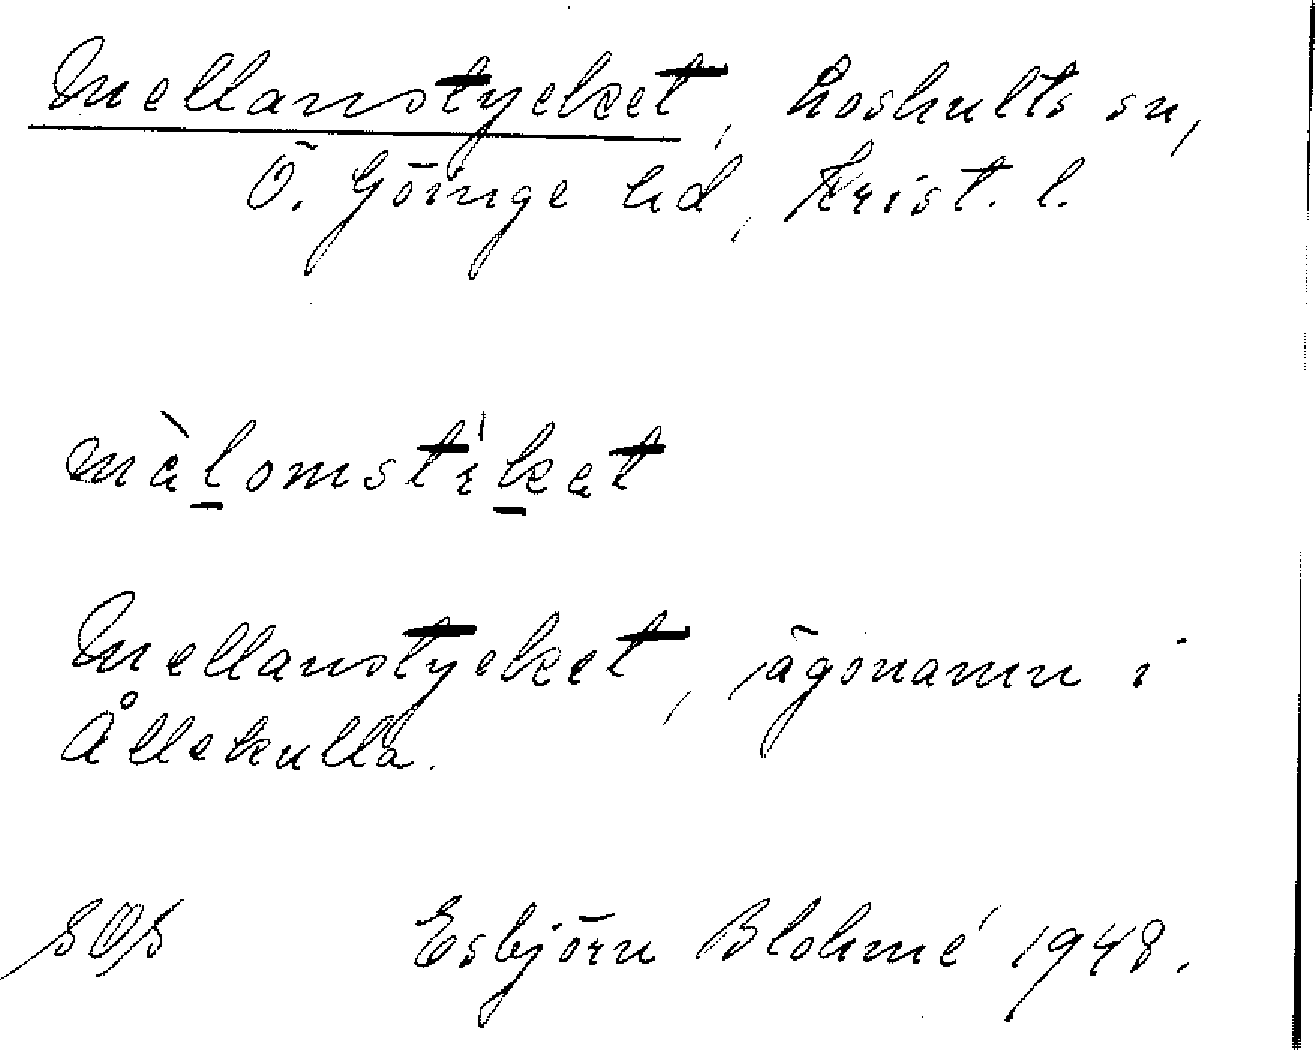 Mellanstycket, Loshults sn,
Ö. Göinge hd, Krist. l.
màl̠omstík̠et
Mellanstycket, ägonamn i
Ållekulla.
Esbjörn Blohmé 1948.